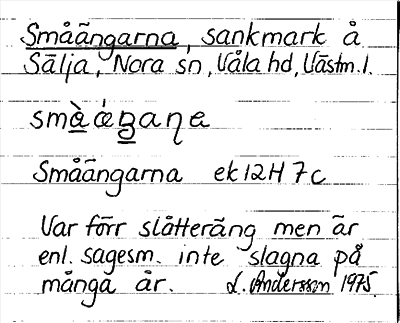 Småängarna, sankmark å
Sälja, Nora sn, Våla hd, Västm.l.
Småängarna ek 12H 7c
Var förr slåtteräng men är
enl. sagesm. inte slagna på
många år. L. Andersson 1975.